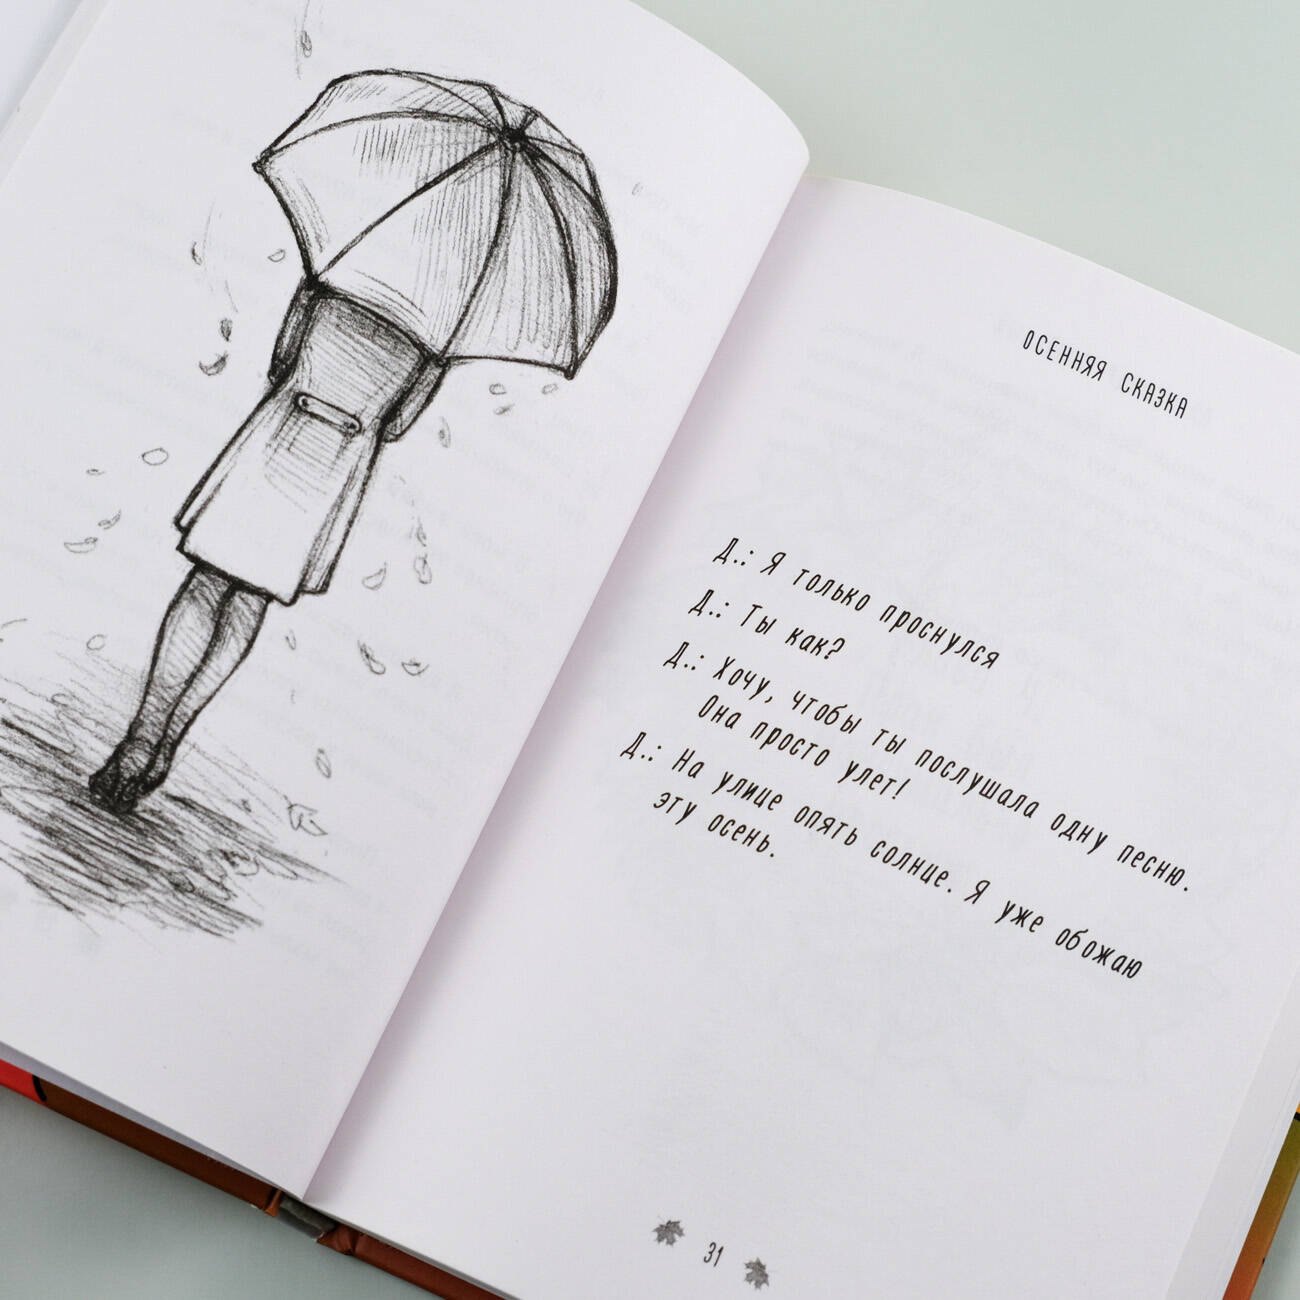 ОСЕННЯЯ СКАЗКА
Д.: Я только проснулся
Д.: Ты как?
Д.: Хочу, чтобы ты послушала одну песню.
Она просто улет!
Д.: На улице опять солнце. Я уже обожаю
эту осень.
31